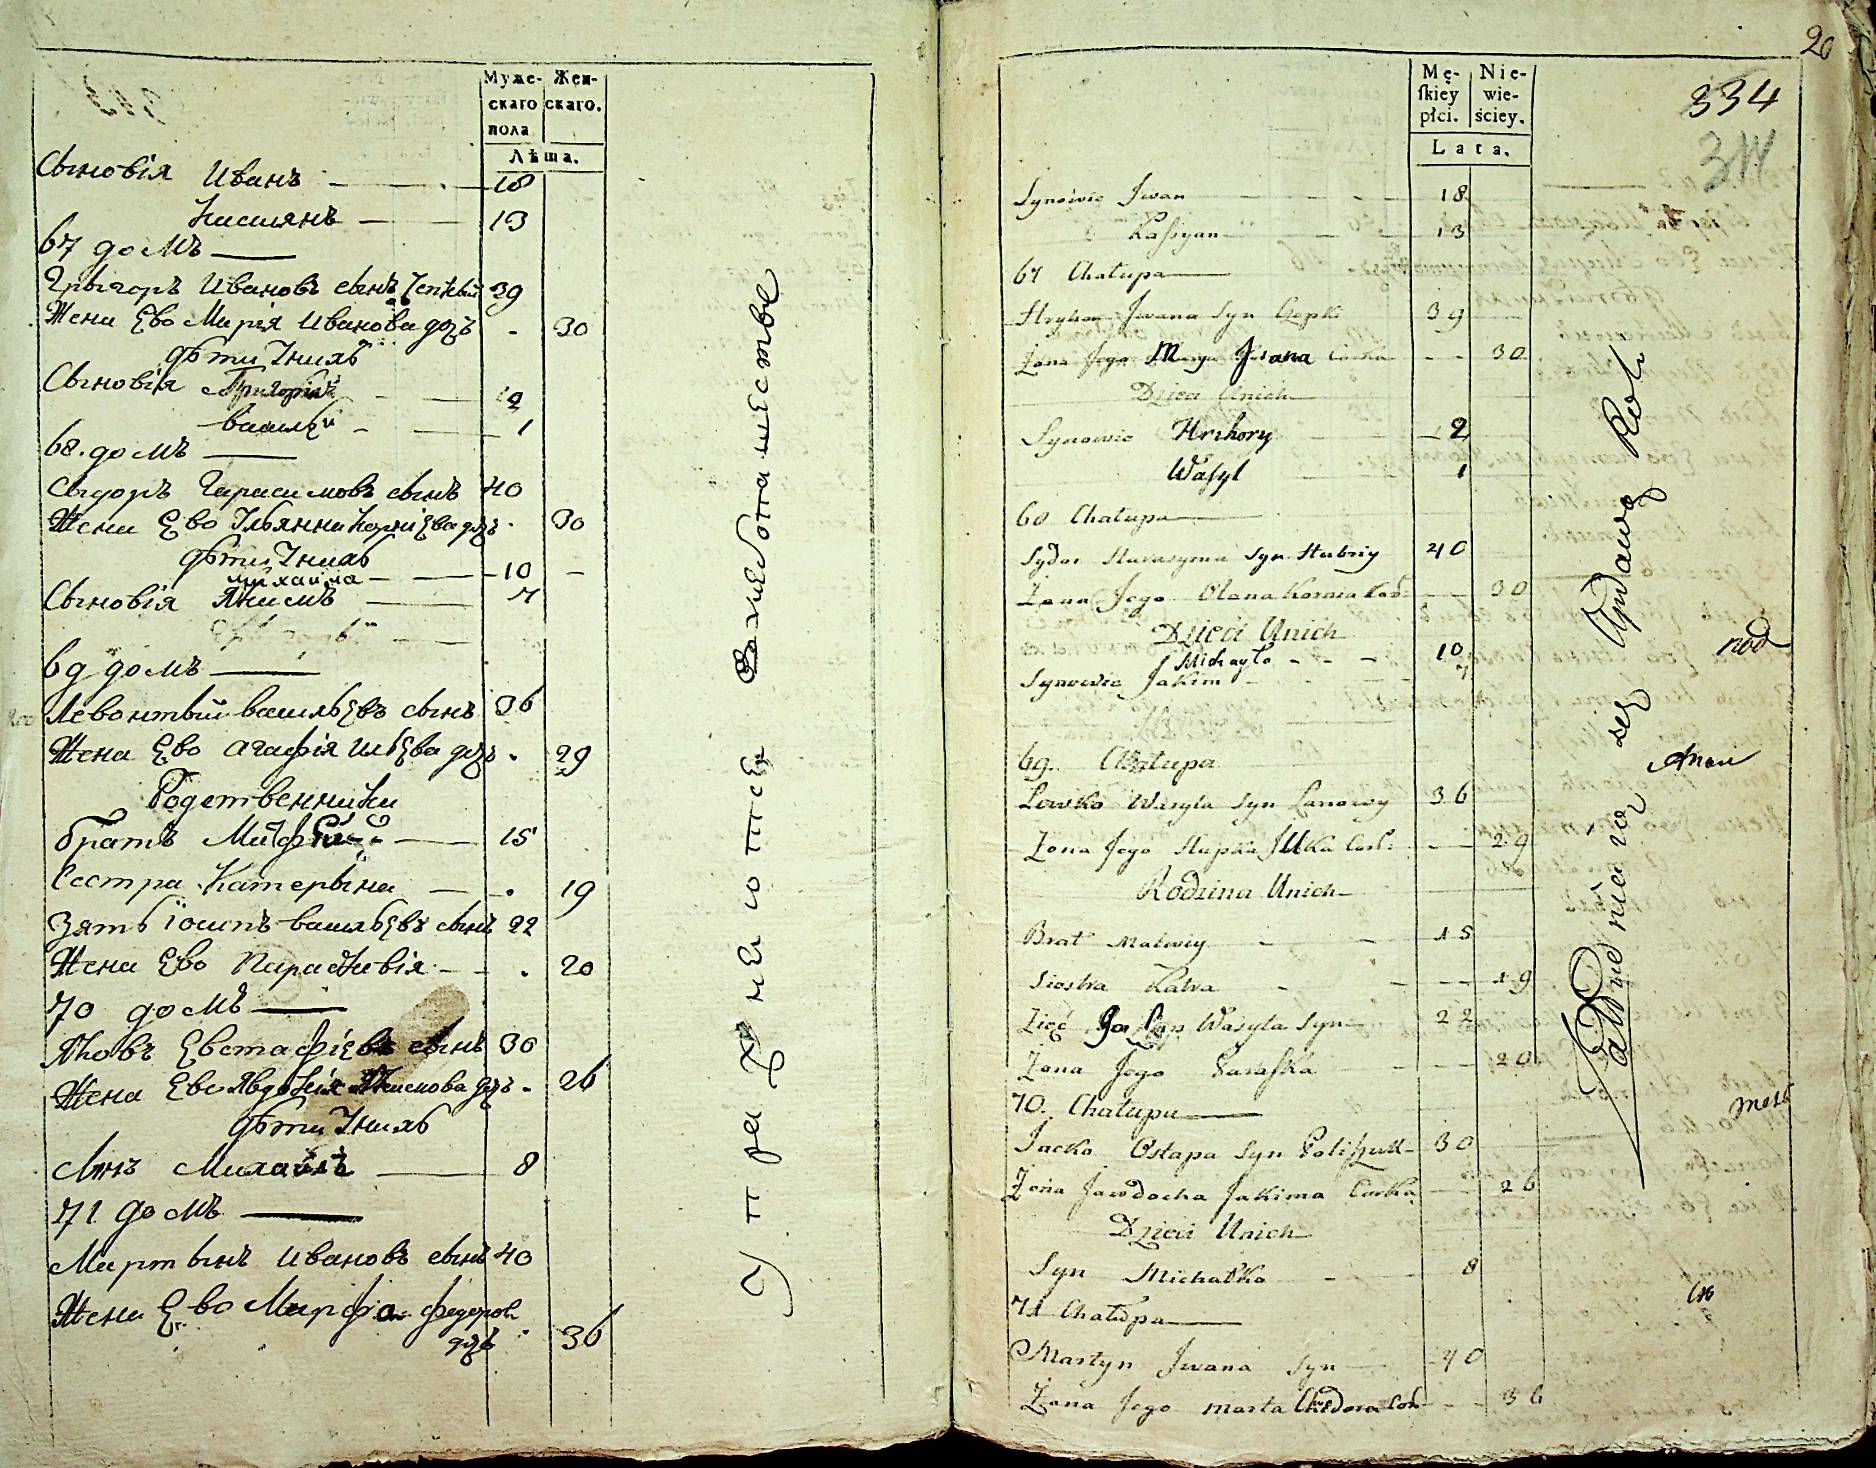 Муже-
скаго
пола
Жен-
скаго.
Лѣта.
Сыновія Иванъ — 18
Касиянъ — 13
67 домъ —
Грыгоръ Ивановъ сынъ 39
Жена Ево Марія Иванова дочъ . 30
дѣти Унихъ
Сыновія Григорій — 12
василѣй — 1
68. домъ —
Сыдоръ Гарасимовъ сынъ 40
Жена Ево Ульянна Корніева дочъ . 30
дѣти Унихъ
михайла — 10 —
Сыновія Якимъ — 7
69 домъ —
Левонтый васильевъ сынъ 36
Жена Ево агафія ильева дочъ . 29
Родственники
братъ — 15
Сестра Катерына — . 19
Зять Іосипъ васильевъ сынъ 22
Жена Ево Парасковія — . 20
70 домъ —
Яковъ Евстафіевъ сынъ 30
Жена Ево Явдокія Якимова дочъ . 26
дѣти Унихъ
сынъ Михайлъ — 8
71 домъ —
Мартынъ Ивановъ сынъ 40
Жена Ево Марфа федорова
дочъ . 36
20
334
314
Mę-
ſkiey
płci.
Nie-
wie-
ściey.
Lata.
Synowie Jwan — 18
Kaſsyan — 13
67 Chałupa —
Hryhor Jwana Syn 39
Żona Jego Marya Jwana Corka — 30
Dzieci Unich
Synowie Hrihory — 12
Waſyl — 1
68 Chałupa —
Sydor Harasyma Syn 40
Żona Jego Olana Kornia Cor: — 30
Dzieci Unich
Michayło — 10
Synowie Jakim — 7
69. Chałupa
Lewko Wasyla Syn 36
Żona Jego Hapka Jlka Cork: — 29
Rodzina Unich
Brat Matwiy — 15
Siostra Katra — 19
Zięć Wasyla Syn 22
Żona Jego Paraſka — 20
70. Chałupa —
Jacko Ostapa Syn 30
Żona Jawdocha Jakima Corka — 26
Dzieci Unich
Syn Michałko — 8
71 Chałupa —
Martyn Jwana Syn — 40
Żona Jego Marta Chwedora Cor: — 36